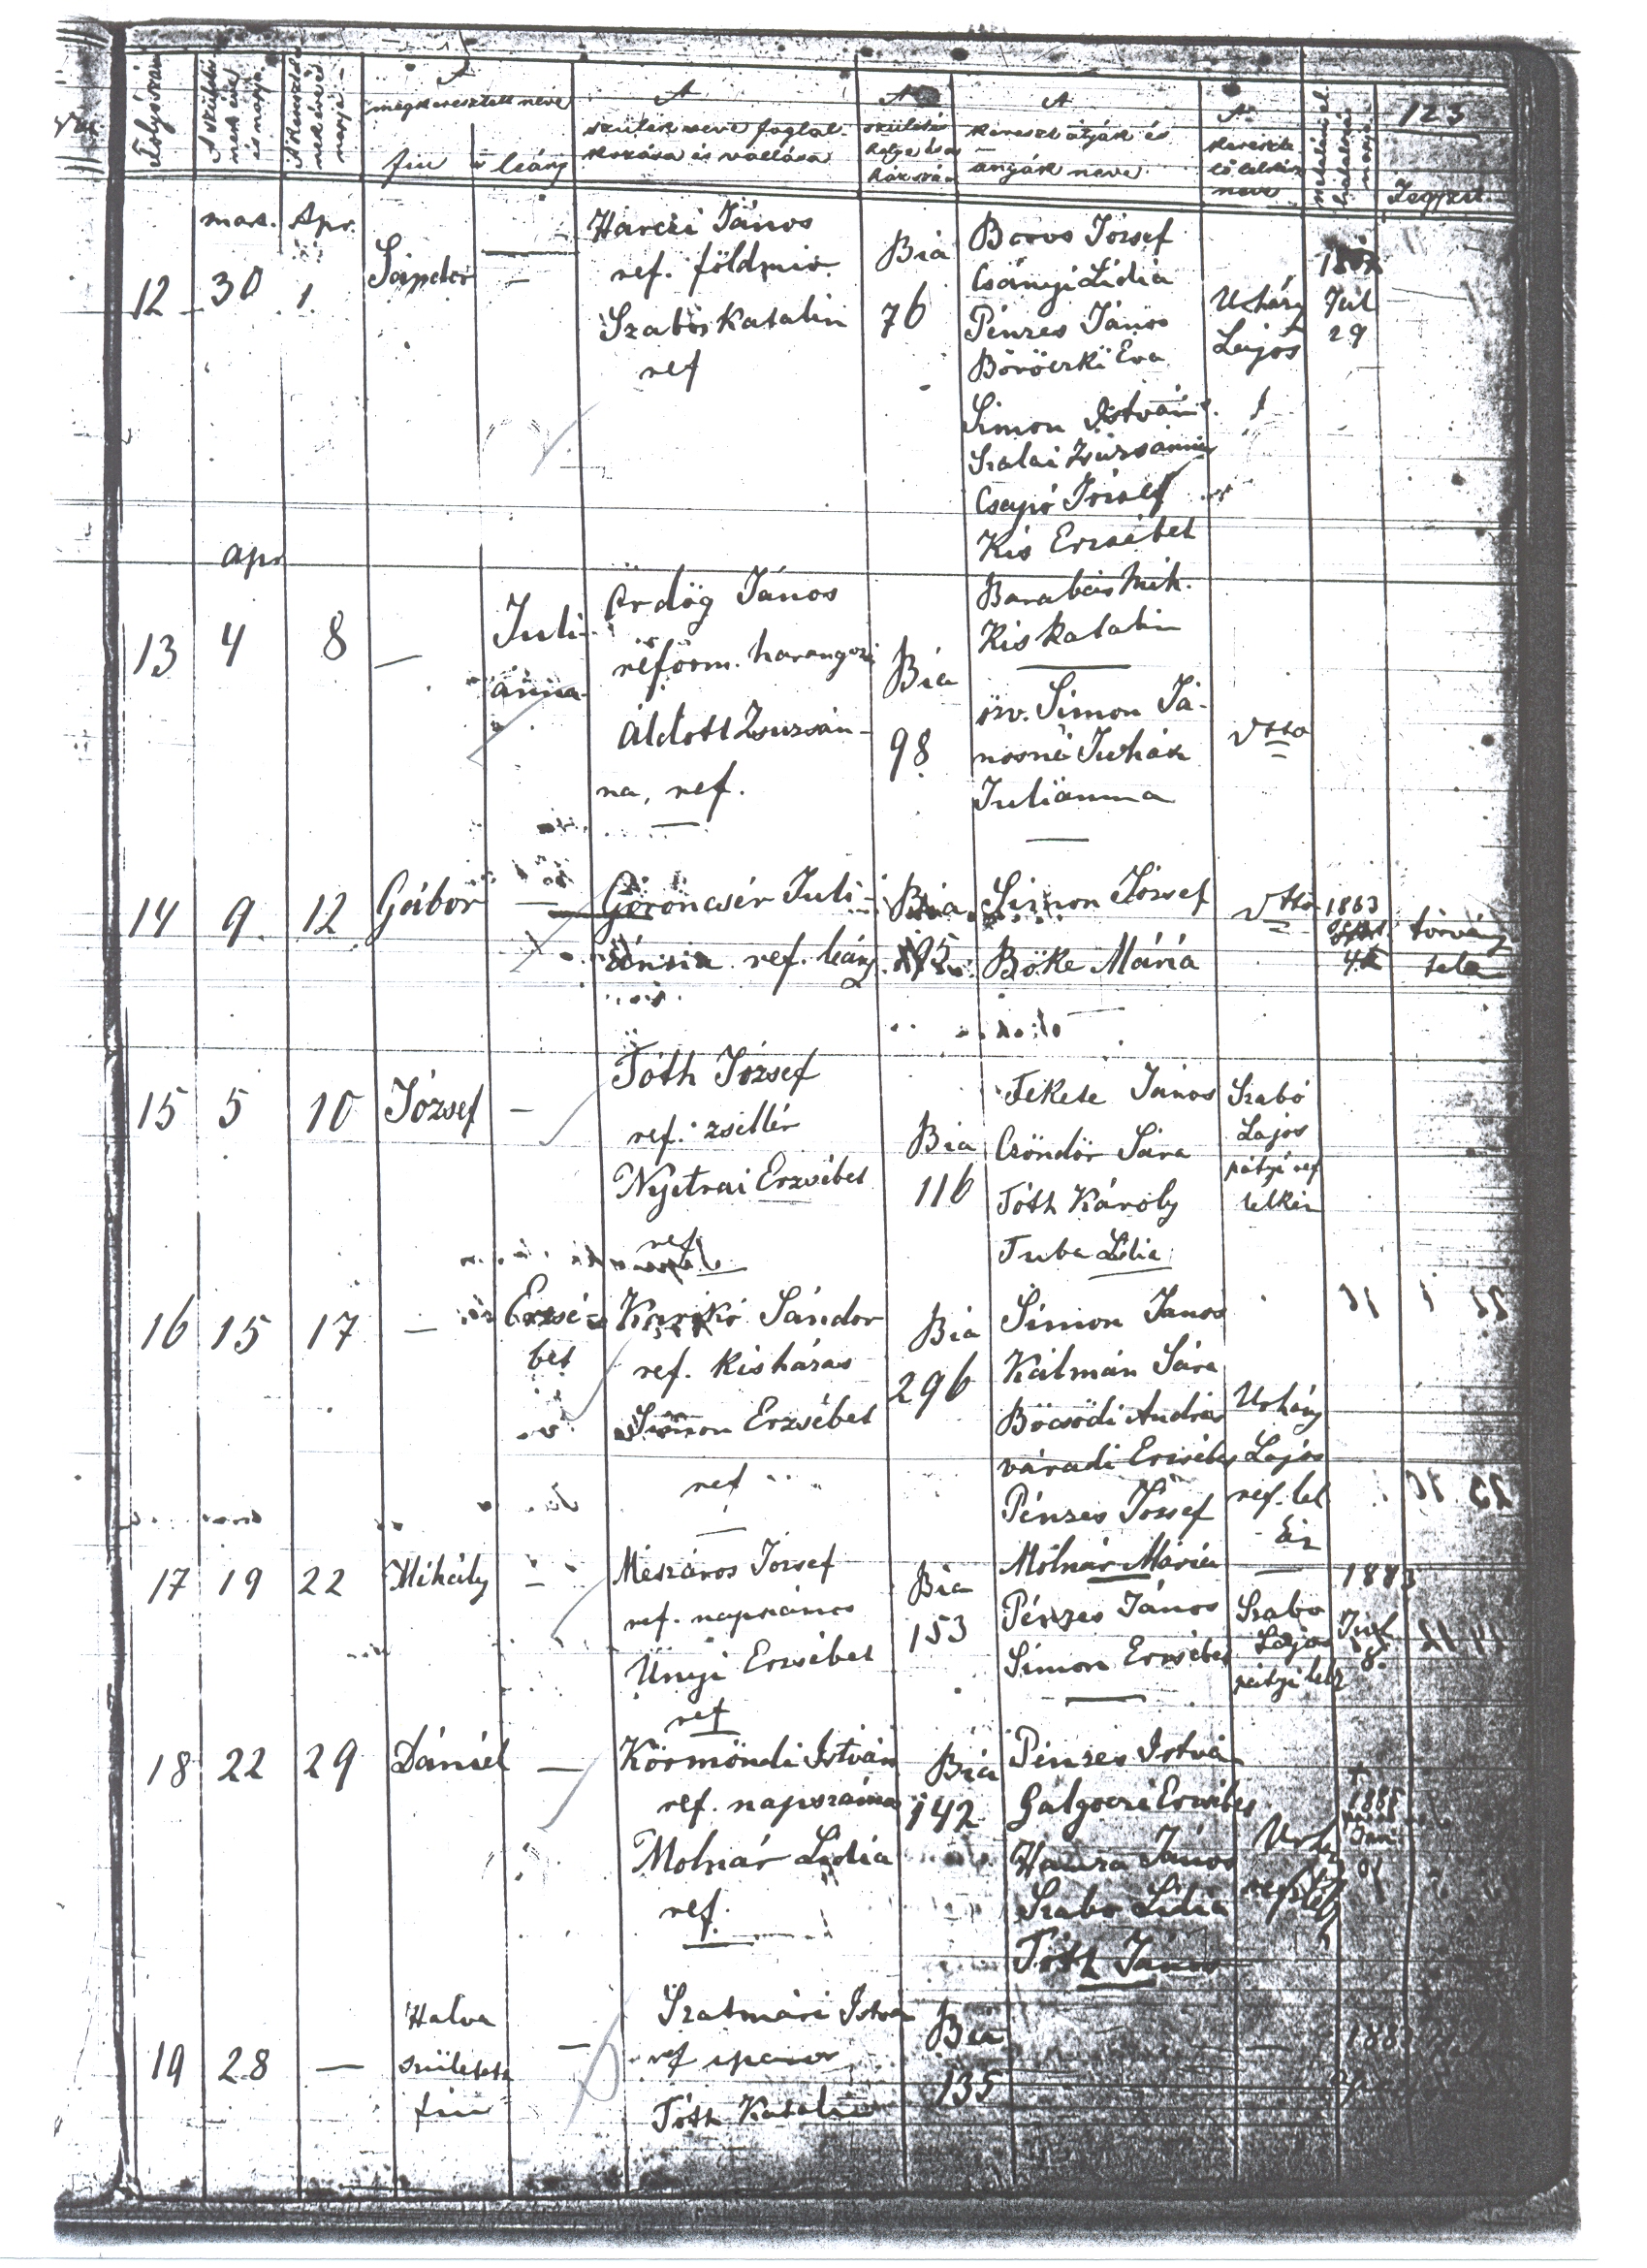 Folyószám
A születésnek éve és napja
A keresztelésnek éve és napja
A megkeresztelt neve
fiu
leány
A szülék neve foglalkozása és vallása
A születés helye és a házszám
A keresztatyák és anyák neve
A keresztelő lelkész neve
123
Jegyzet
mar. Apr.
12 30 1. Sándor — —
Harczi János
ref. földmiv.
Szabós Katalin
ref
Bia
76
Boros József
Csányi Lidia
Pénzes János
Böröczki Éva
Simon István
Szalai Zsuzsánna
Csapó József
Kis Erzsébet
Barabás Mih.
Kis Katalin
Urházy
Lajos
Júl
29
Apr
13 4 8 — Juli-
ánna
Ördög János
reform. harangozó
Áldott Zsuzsán-
na, ref.
Bia
98
özv. Simon Já-
nosné Juhák
Juliánna
Dtto
14 9. 12 Gábor —
Göröncsér Juli-
ánna ref. leány
Bia
195
Simon József
Böke Mária
Dtto
1883
törvény
tele
15 5 10 József —
Tóth József
ref. zsellér
Nyitrai Erzsébet
ref
Bia
116
Fekete János
Czöndör Sára
Tóth Károly
Tuba Lidia
Szabó
Lajos
pátyi ref
lelkész
16 15 17 — Erzsé-
bet
Karikó Sándor
ref. kisházas
Simon Erzsébet
ref
Bia
296
Simon János
Kálmán Sára
Böcsödi András
Váradi Erzsébet
Pénzes József
Molnár Mária
Urházy
Lajos
ref. lel
kész
17 19 22 Mihály —
Mészáros József
ref. napszámos
Ünyi Erzsébet
ref
Bia
153
Pénzes János
Simon Erzsébet
Szabo
Lajos
pátyi lelk
1883
8.
18 22 29 Dániel —
Körmöndi István
ref. napszámos
Molnár Lidia
ref.
Bia
142
Pénzes István
Galgoczi Erzsébet
Hanza János
Szabo Lidia
Tóth János
19 28 — Halva
születet
fiu
—
Szatmári István
ref iparos
Tóth Katalin
Bia
135